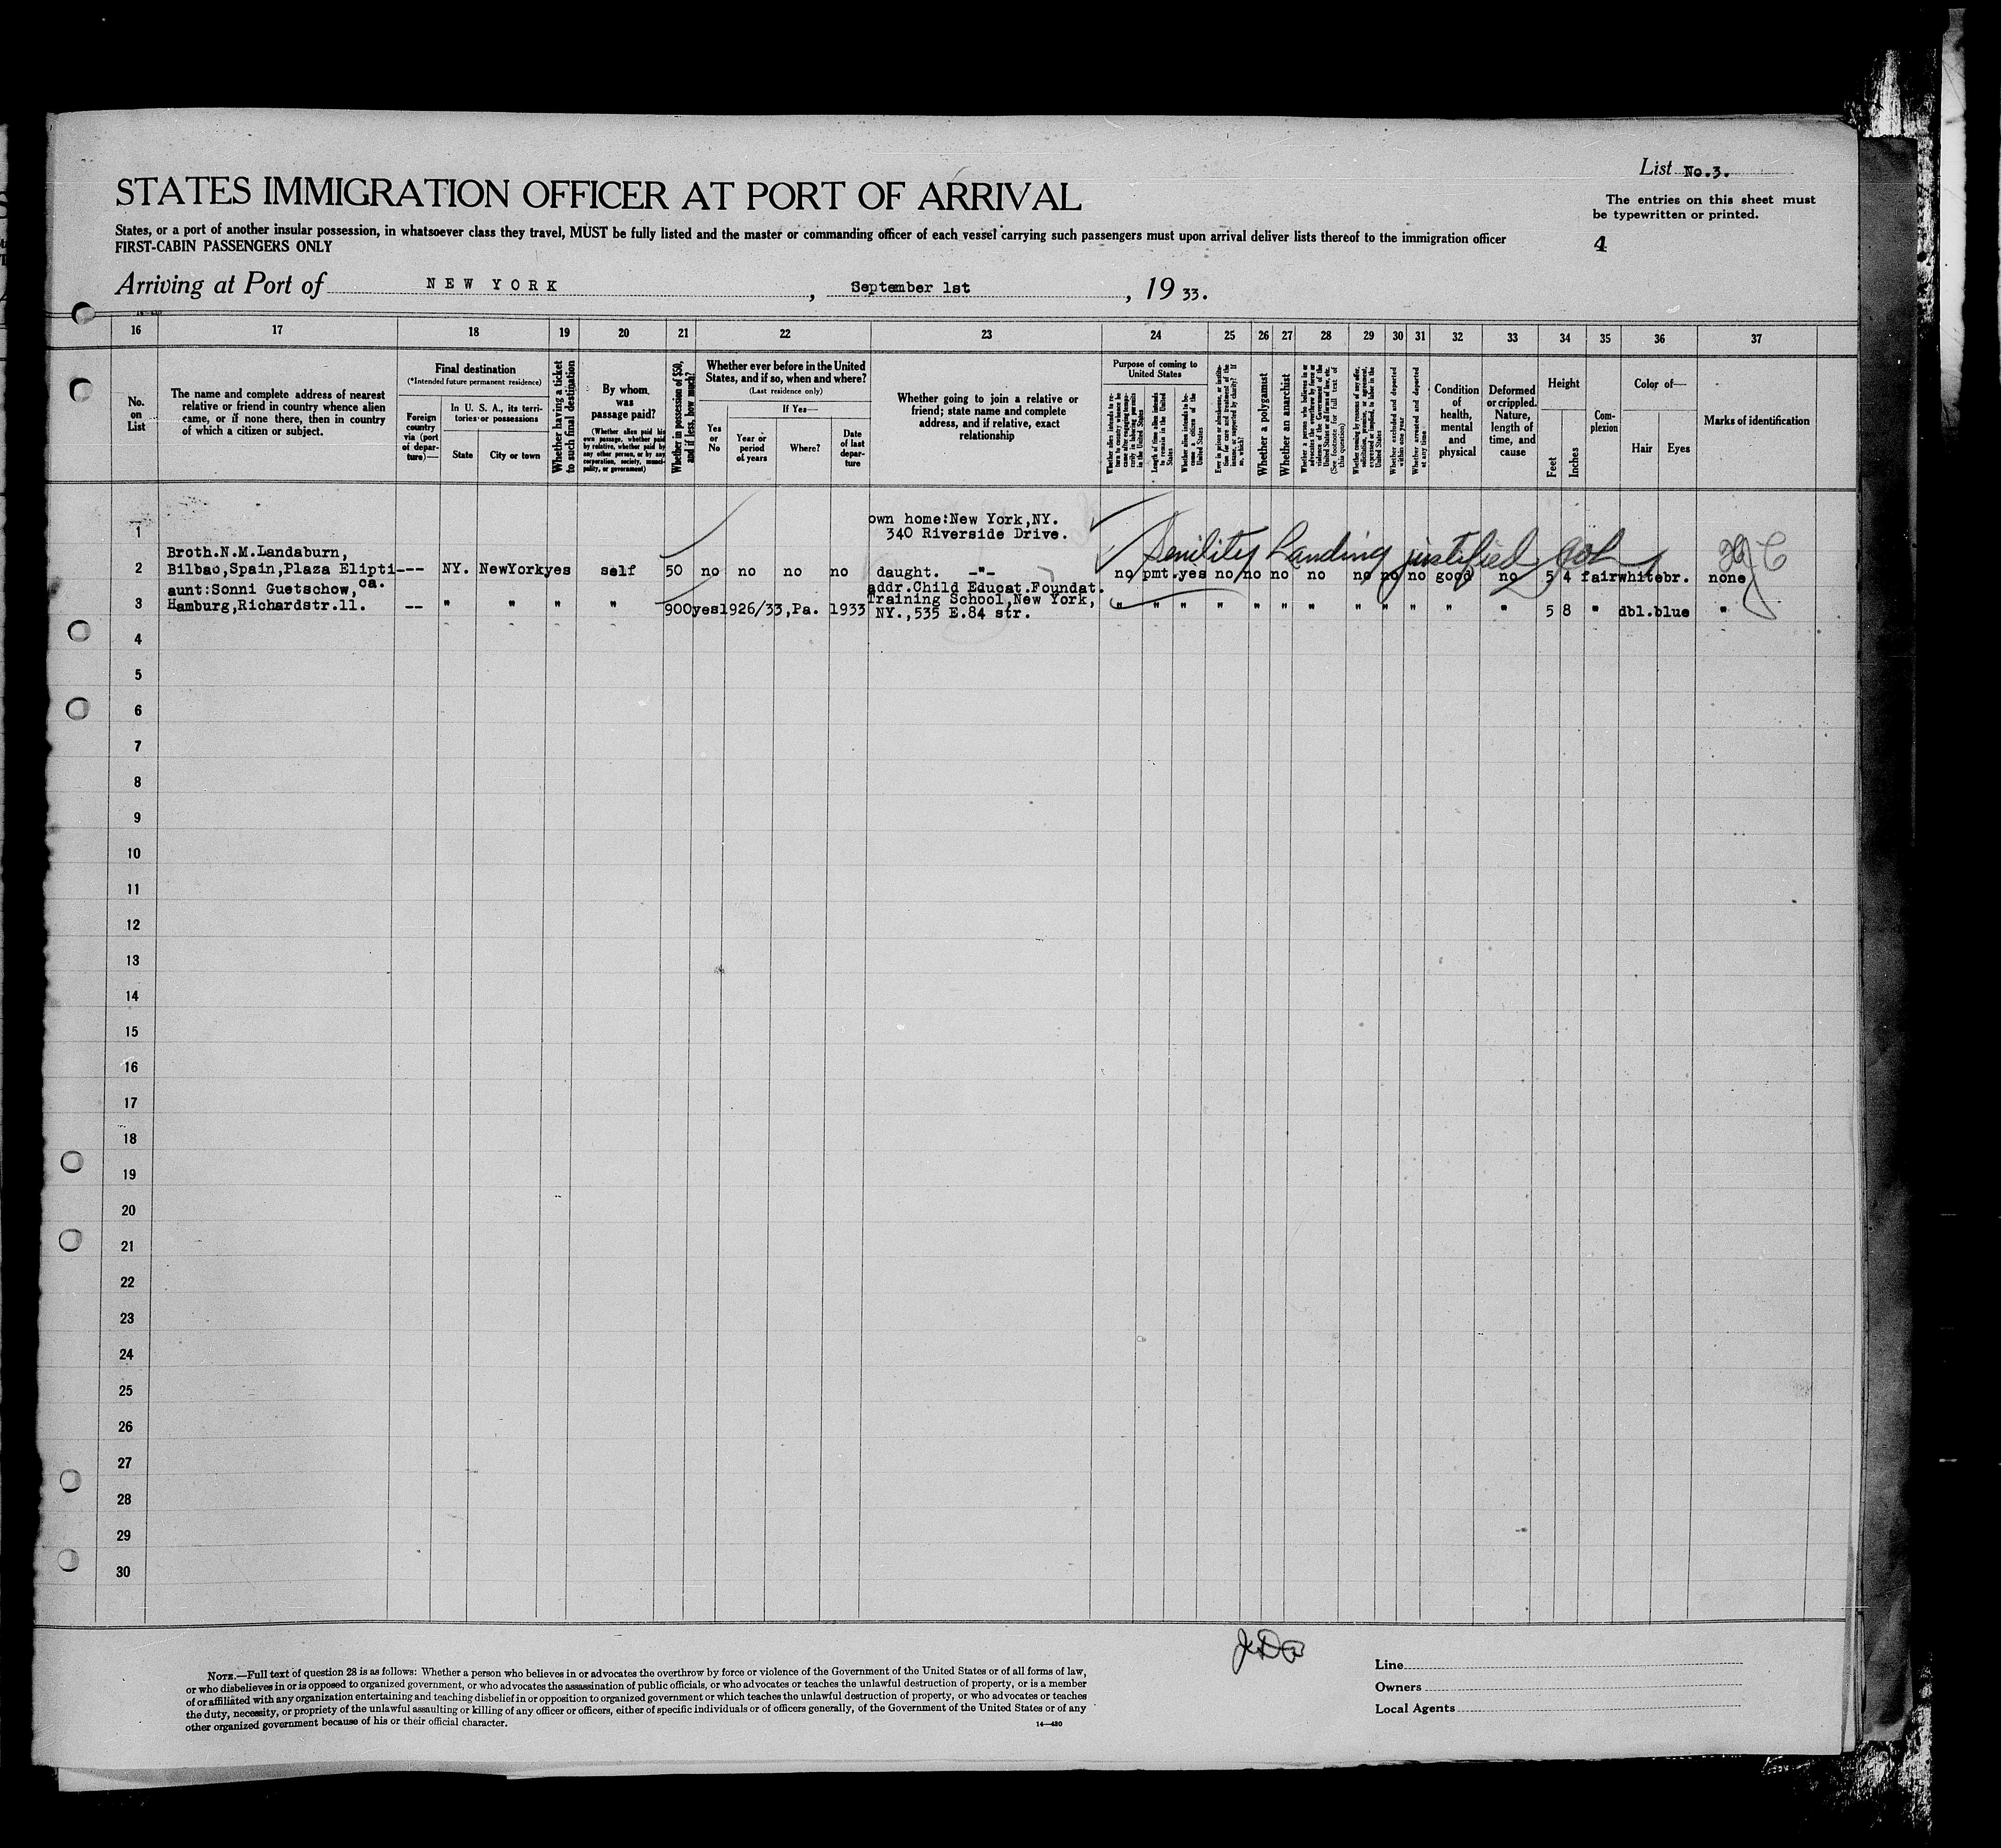 List No.3.
STATES IMMIGRATION OFFICER AT PORT OF ARRIVAL
The entries on this sheet must
be typewritten or printed.
States, or a port of another insular possession, in whatsoever class they travel, MUST be fully listed and the master or commanding officer of each vessel carrying such passengers must upon arrival deliver lists thereof to the immigration officer
FIRST-CABIN PASSENGERS ONLY
4
Arriving at Port of NEW YORK, September 1st, 1933.
16 17 18 19 20 21 22 23 24 25 26 27 28 29 30 31 32 33 34 35 36 37
No. on List
The name and complete address of nearest
relative or friend in country whence alien
came, or if none there, then in country
of which a citizen or subject.
Final destination
(*Intended future permanent residence)
Foreign country via (port of departure)—
In U. S. A., its terri-
tories or possessions
State
City or town
Whether having a ticket
to such final destination
By whom
was
passage paid?
(Whether alien paid his
own passage, whether paid
by relative, whether paid by
any other person, or by any
corporation, society, munici-
pality, or government)
Whether in possession of $50,
and if less, how much?
Whether ever before in the United
States, and if so, when and where?
(Last residence only)
Yes or No
If Yes—
Year or period of years
Where?
Date of last depar-ture
Whether going to join a relative or
friend; state name and complete
address, and if relative, exact
relationship
Purpose of coming to
United States
Length of time alien intends
to remain in the United
States
Whether alien intends to be-
come a citizen of the
United States
Whether a polygamist
Whether an anarchist
Whether excluded and deported
within one year
Whether arrested and deported
at any time
Condition
of
health,
mental
and
physical
Deformed
or crippled.
Nature,
length of
time, and
cause
Height
Feet
Inches
Com-
plexion
Color of—
Hair
Eyes
Marks of identification
1
own home:New York,NY.
340 Riverside Drive.
Senility Landing justified
Broth.N.M.Landaburn,
2 Bilbao,Spain,Plaza Elipti- --- NY. NewYork yes self 50 no no no no daught. -"- no pmt. yes no no no no no no no good no 5 4 fair white br. none
ca.
aunt:Sonni Guetschow,
addr.Child Educat.Foundat.
Training School,New York,
3 Hamburg,Richardstr.11. -- " " " " 900 yes 1926/33,Pa. 1933 NY.,535 E.84 str. " " " " " " " " " " " " 5 8 " dbl. blue "
4
5
6
7
8
9
10
11
12
13
14
15
16
17
18
19
20
21
22
23
24
25
26
27
28
29
30
NOTE.—Full text of question 28 is as follows: Whether a person who believes in or advocates the overthrow by force or violence of the Government of the United States or of all forms of law,
or who disbelieves in or is opposed to organized government, or who advocates the assassination of public officials, or who advocates or teaches the unlawful destruction of property, or is a member
of or affiliated with any organization entertaining and teaching disbelief in or opposition to organized government or which teaches the unlawful destruction of property, or who advocates or teaches
the duty, necessity, or propriety of the unlawful assaulting or killing of any officer or officers, either of specific individuals or of officers generally, of the Government of the United States or of any
other organized government because of his or their official character.
14—430
Line
Owners
Local Agents